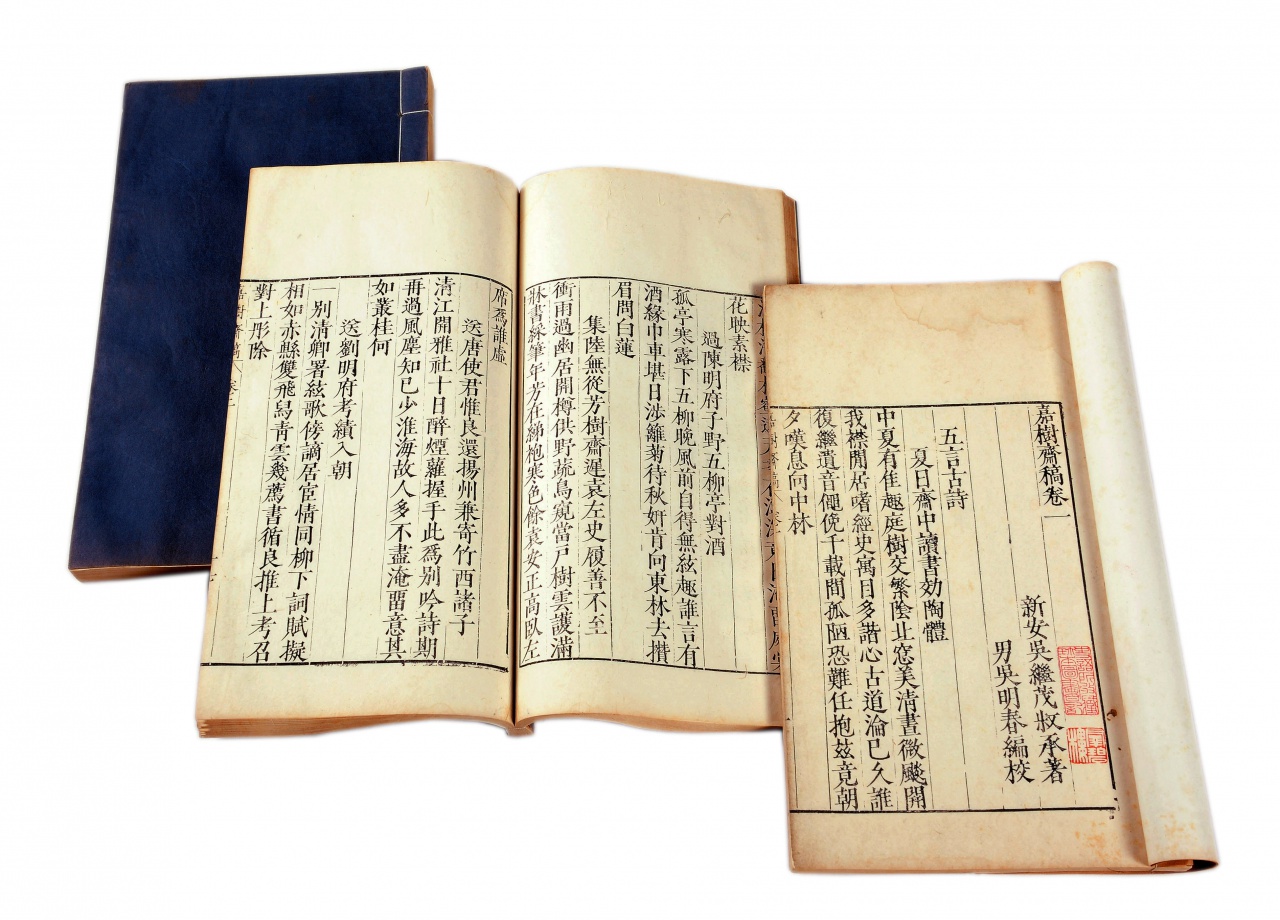 嘉樹齋稿卷一
新安吳繼茂叔承著
男吳明春編校
五言古詩
夏日齋中讀書効陶體
中夏有佳趣庭樹交繁陰北窓美清晝微飈開
我襟閒居嗜經史寓目多諧心古道淪已久誰
復繼遺音僶俛千載間孤陋恐難任抱茲竟朝
夕嘆息向中林
花映素襟
過陳明府子野五柳亭對酒
孤亭寒露下五柳晚風前自得無絃趣誰言有
酒緣巾車堪日涉籬菊待秋姸肯向東林去攢
眉問白蓮
集陸無從芳樹齋遲袁左史履善不至
衝雨過幽居開樽供野蔬鳥窺當戸樹雲護滿
牀書綵筆年芳在綈袍寒色餘袁安正高臥左
席爲誰虛
送唐使君惟良還揚州兼寄竹西諸子
清江開雅社十日醉煙蘿握手此爲別吟詩期
再過風塵知已少淮海故人多不盡淹畱意其
如叢桂何
送劉明府考績入朝
一別清卿署絃歌傍謫居宦情同柳下詞賦擬
相如赤縣雙飛舄青雲幾薦書循良推上考召
對上彤除
嘉樹齋稿